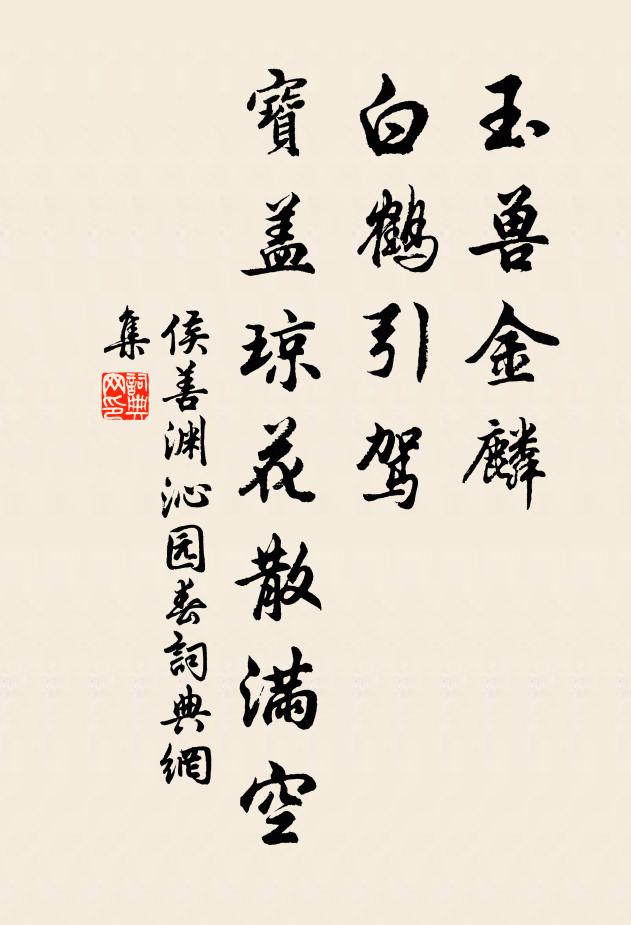 玉兽金麟
白鹤引驾
寶盖琼花散满空
侯善渊沁园春詞典網
集
詞典网印